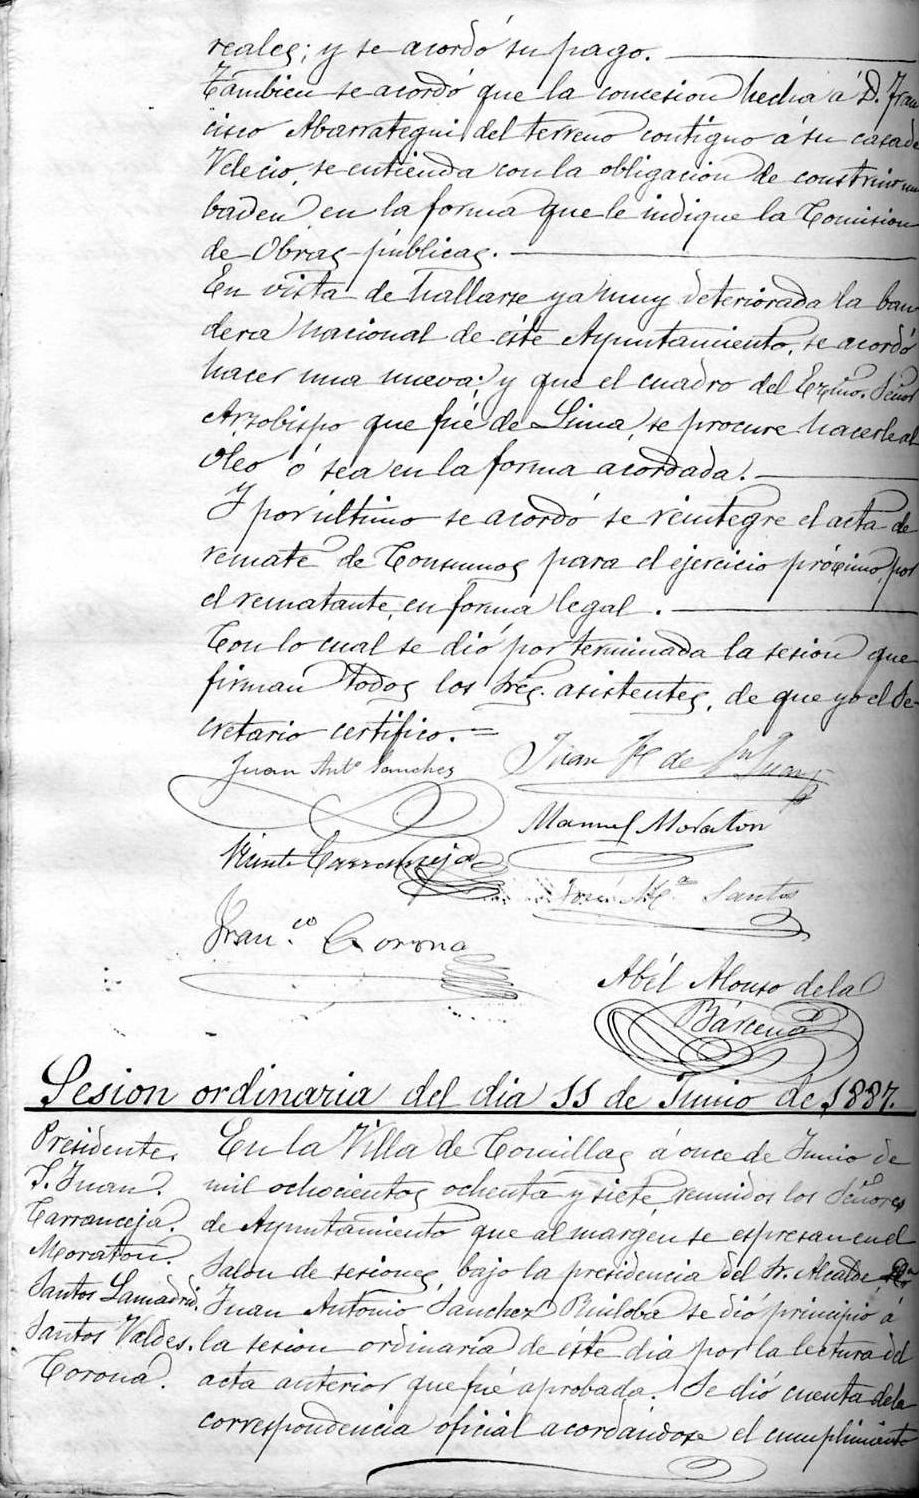 reales; y se acordó su pago.
Tambien se acordó que la concesion hecha á D. Fran
cisco Abarrategui del terreno contiguo á su casa de
Velecio, se entienda con la obligacion de construir un
baden en la forma que le indique la Comision
de Obras públicas.
En vista de hallarse ya muy deteriorada la ban
dera nacional de éste Ayuntamiento, se acordó
hacer una nueva; y que el cuadro del Exmo. Señor
Arzobispo que fué de Lima, se procure hacerle al
óleo ó sea en la forma acordada.
Y por último se acordó se reintegre el acta de
remate de Consumos para el ejercicio próximo, por
el rematante, en forma legal.
Con lo cual se dió por terminada la sesion que
firman todos los Sres. asistentes, de que yo el Se-
cretario certifico.=
Juan Anto. Sanchez
Juan F. de Sn Juan
Manuel Moraton
Vicente Carranceja
José Ma. Santos
Fran.co Corona
Abél Alonso de la
Bárcena
Sesion ordinaria del dia 11 de Junio de 1887.
Presidente.
S. Juan.
Carranceja.
Moraton.
Santos Lamadrid.
Santos Valdes.
Corona.
En la Villa de Comillas á once de Junio de
mil ochocientos ochenta y siete, reunidos los Señores
de Ayuntamiento que al margen se espresan en el
Salon de sesiones, bajo la presidencia del Sr. Alcalde Dn.
Juan Antonio Sanchez Ruiloba se dió principio á
la sesion ordinaria de éste dia por la lectura del
acta anterior que fué aprobada. Se dió cuenta de la
correspondencia oficial acordándose el cumplimiento